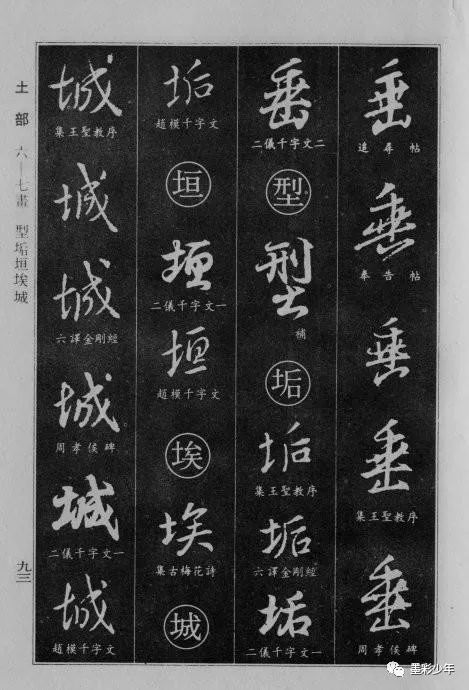 垂
追尋帖
垂
奉告帖
垂
垂
集王聖教序
垂
周孝侯碑
垂
二儀千字文二
型
型
補
垢
垢
集王聖教序
垢
六譯金剛經
垢
二儀千字文一
垢
趙模千字文
垣
垣
二儀千字文一
垣
趙模千字文
埃
埃
集古梅花詩
城
城
集王聖教序
城
城
六譯金剛經
城
周孝侯碑
城
二儀千字文一
城
趙模千字文
土部 六—七畫 型垢垣埃城
九三
墨彩少年